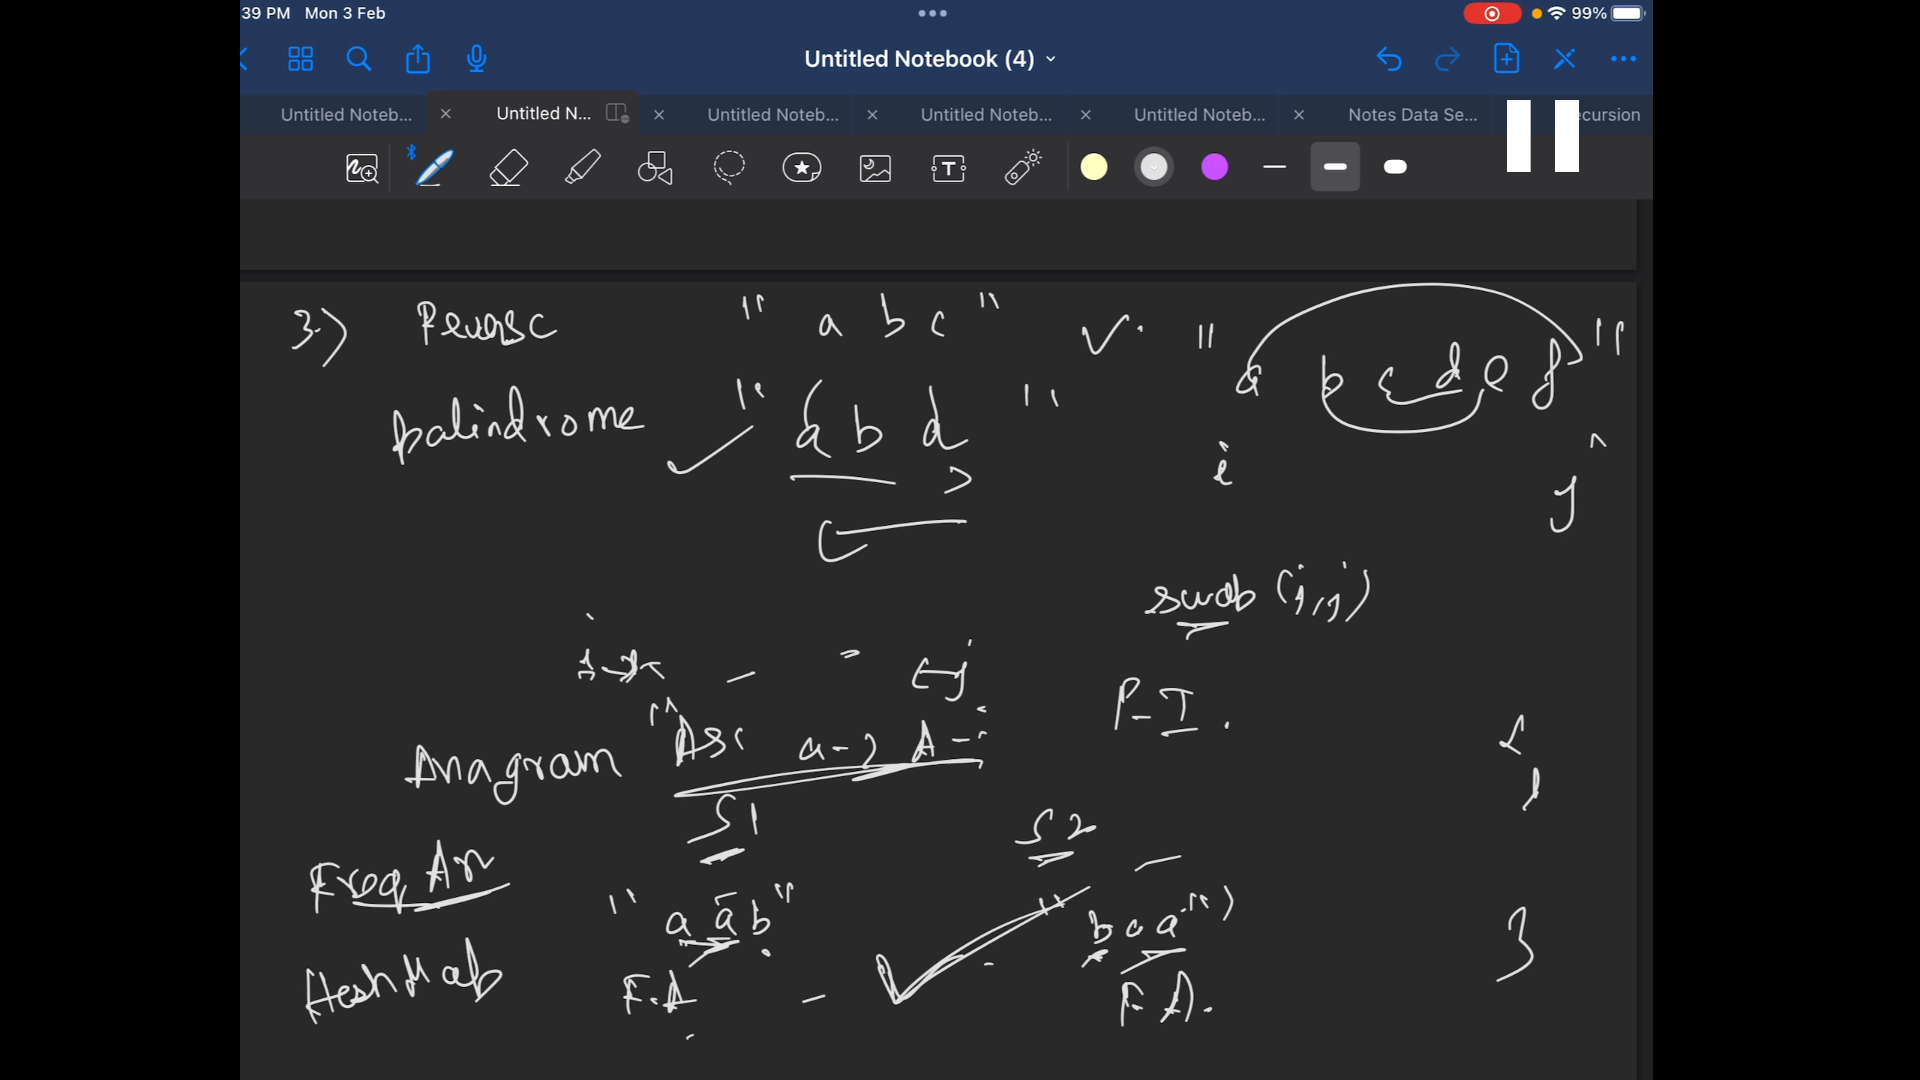 39 PM Mon 3 Feb
99%
Untitled Notebook (4)
Untitled Noteb...
Untitled N...
Untitled Noteb...
Untitled Noteb...
Untitled Noteb...
Notes Data Se...
ecursion
3.) Reverse " a b c " " a b c d e f "
palindrome " a b d "
i j
swap (i,j)
i j
P-I.
Anagram a - A -
S1 S2
Freq Arr
" a a b " " b a a "
HashMap F.A F.A.